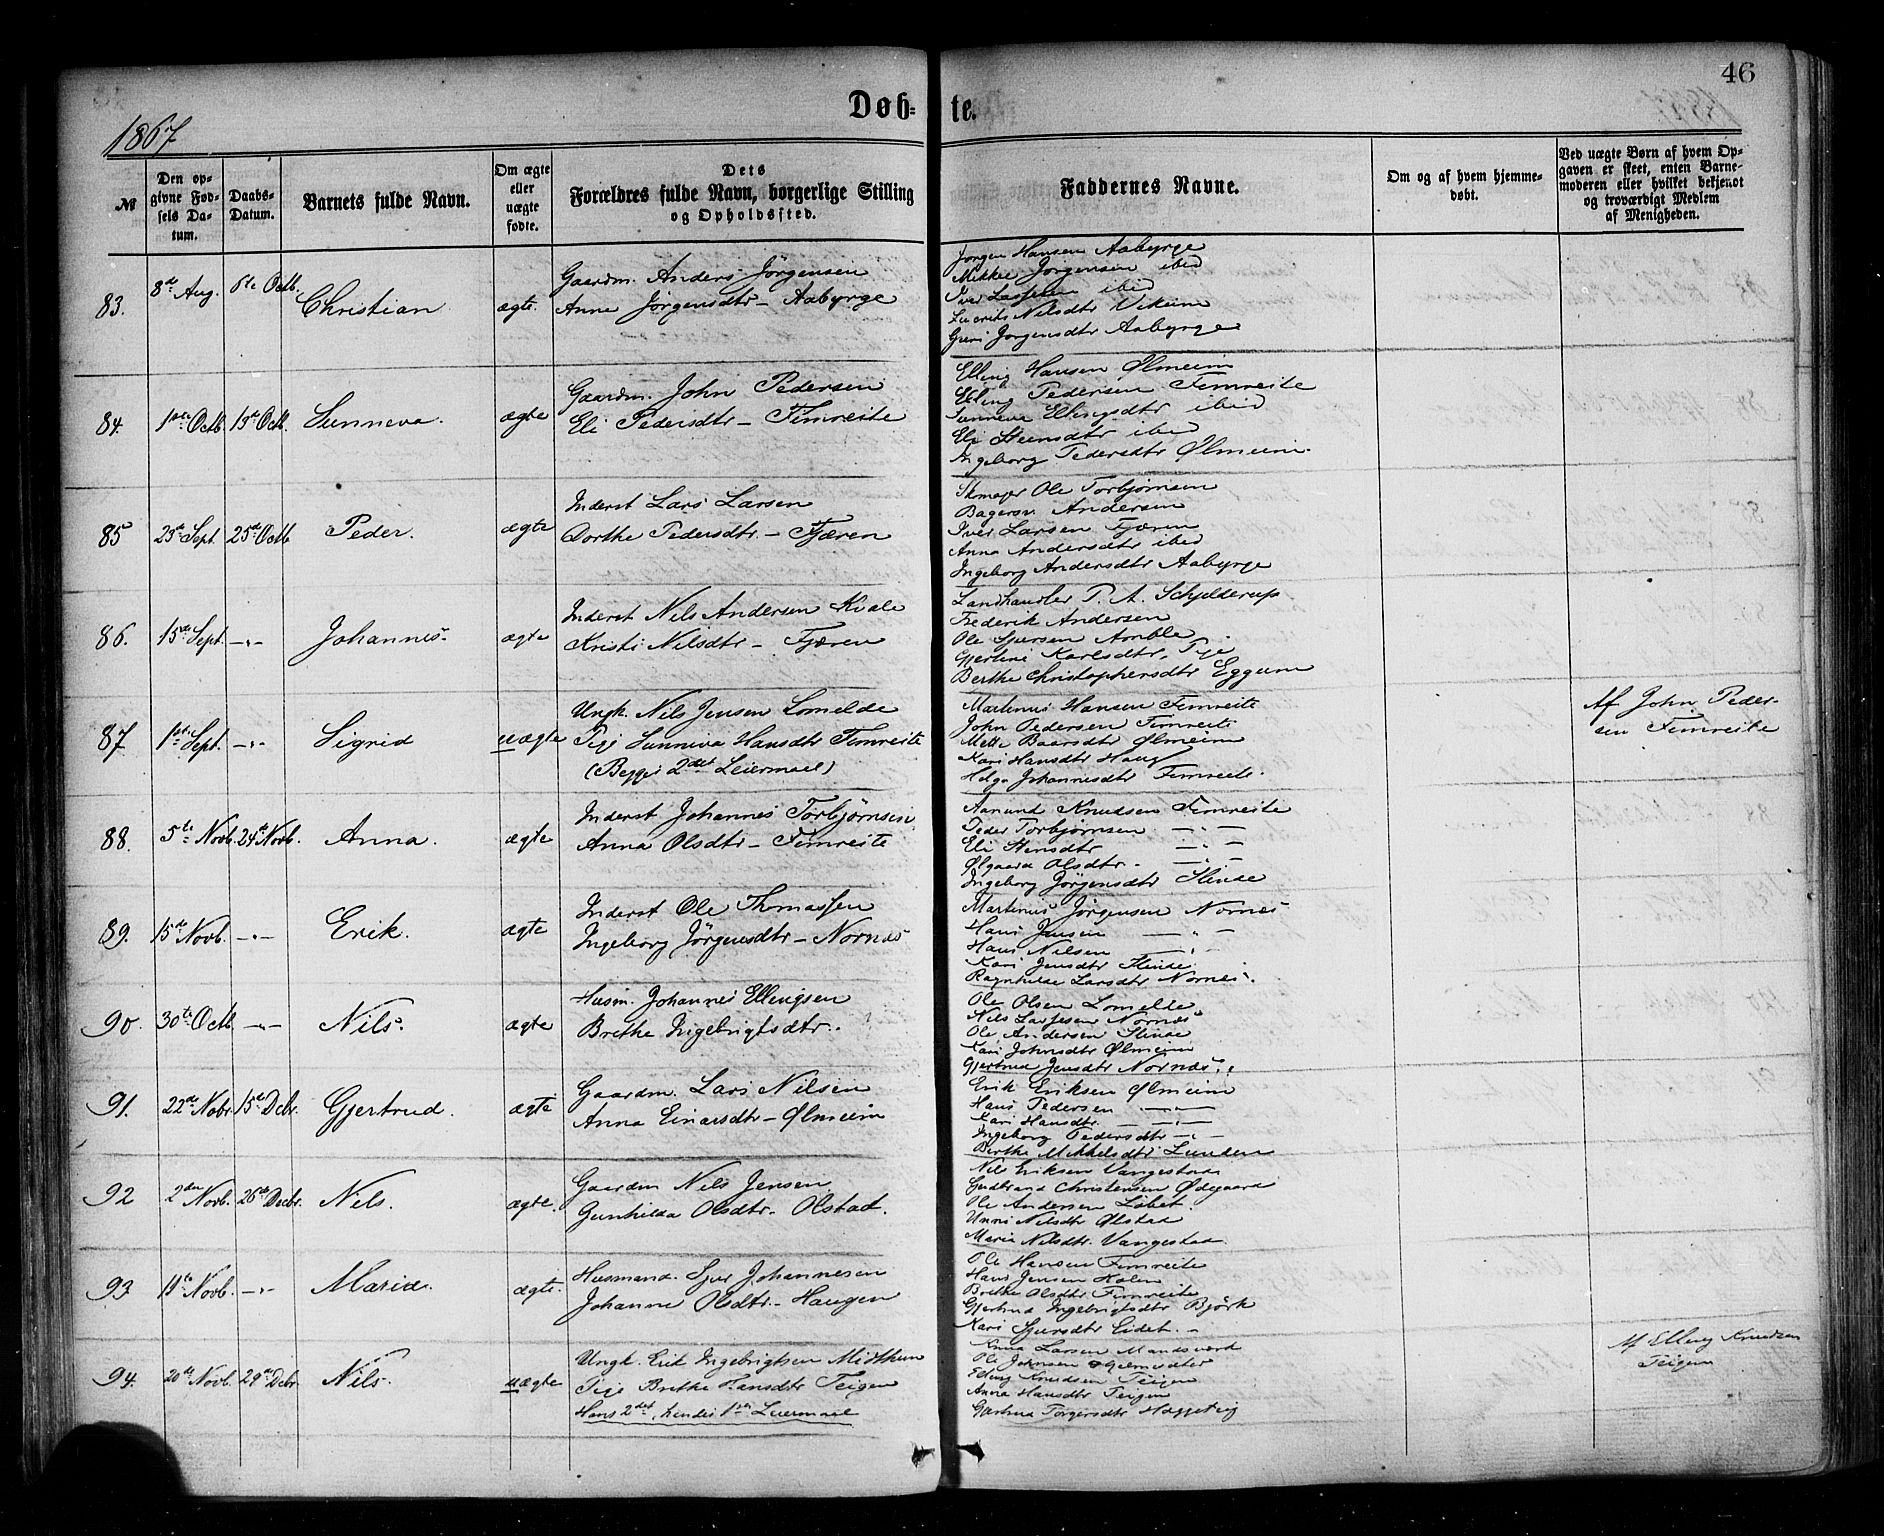 46
Døb- te.
1867
№
Den opgivne Fødsels Datum.
Daabs-Datum.
Barnets fulde Navn.
Om ægte eller uægte fødte.
Dets Forældres fulde Navn, borgerlige Stilling og Opholdssted.
Faddernes Navne.
Om og af hvem hjemmedøbt.
Ved uægte Børn af hvem Opgaven er skeet, enten Barnemoderen eller hvilket bekjendt og troværdigt Medlem af Menigheden.
83. 8de Aug. 6te Octb. Christian ægte.
Gaardm. Anders Jörgensen
Anne Jörgensdtr - Aabyrge
Jörgen Hansen Aabyrge
Mikkel Jörgensen ibid
Iver Lassesen ibid
Nilsdtr Vikeim
Guri Jorgensdtr Aabyrge
84. 1ste Octb. 13de Octb. Sunneva. ægte
Gaardm. John Pedersen
Eli Pedersdtr - Fimreite
Elling Hansen Ølmeim
Elling Pedersen Fimreite
Sunneva Ellingsdtr ibid
Eli Steensdtr ibid
Ingeborg Pedersdtr Ølmeim.
85 23de Sept. 25de Octb. Peder. ægte
Inderst Lars Larsen
Dorthe Pedersdtr. - Fjæren
Skomager Ole Torbjörnsen
Bagersv. Andersen
Iver Larsen Fjæren
Anna Andersdtr ibid
Ingeborg Andersdtr Aabyrge
86. 15de Sept. -"- Johannes. ægte
Inderst Nils Andersen Kvale
Kristi Nilsdtr - Fjæren
Landhandler P. A. Schjelderup
Frederik Andersen
Ole Sjursen Amble
Gjertine Karlsdtr, Pige
Berthe Christophersdtr Eggum
87. 1ste Sept. -"- Sigrid uægte
Ungk. Nils Jensen Lomelde
Pige Sunniva Hansdtr Fimreite
(Begges 2det Leiermaal)
Martinus Hansen Fimreite
John Pedersen Fimreite
Mette Baardsdtr Ølmeim
Kari Hansdtr Haug
Helga Johannesdtr Fimreite.
Af John Peder-
sen Fimreite
88. 5te Novb. 24de Novb. Anna. ægte
Inderst Johannes Torbjørnsen
Anna Olsdtr - Fimreite
Aamund Knudsen Fimreite
Peder Torbjømsen -"-
Eli Stensdtr -"-
Ølgaard Olsdtr. -"-
Ingeborg Jörgensdtr Slinde
89. 15de Novb. -"- Erik. ægte
Inderst Ole Thomassen
Ingeborg Jörgensdtr - Nornæs
Martinus Jörgensen Nornes
Hans Jensen -"-
Hans Nilsen -"-
Kari Jensdtr Slinde.
Ragnhilde Larsdtr Nornes.
90. 30te Octb. -"- Nils. ægte
Husm. Johannes Ellingsen
Brethe Ingebrigtsdtr.
Ole Olsen Lomelde
Nils Lassesen Nornæs
Ole Andersen Slinde
Kari Johnsdtr Ølmeim
Gjertrud Jensdtr Nornæs.
91. 22de Novbr. 15de Debr. Gjertrud. ægte
Gaardm. Lars Nilsen
Anna Einarsdtr - Ølmeim
Erik Eriksen Ølmeim
Hans Pedersen -"-
Kari Hansdtr. -"-
Ingeborg Pedersdtr -"-
Berthe Mikkelsdtr Lunden
92 2den Novb. 26de Decbr. Nils. ægte.
Gaardm Nils Jensen
Gunhilda Olsdtr. Olstad.
Nils Eriksen Vangestad
Gudbrand Christensen Ødegaard
Ole Andersen Løbet.
Unni Nilsdtr Olstad
Marie Nilsdtr. Vangestad.
93 19de Novb. -"- Maria. ægte.
Husmand. Sjur Johannesen
Johanne Olsdtr. - Haugen
Ole Hansen Fimreite
Hans Jensen Holen
Brethe Olsdtr Fimreite
Gjertrud Ingebrigtsdtr Björk
Kari Sjursdtr Eidet. -
94. 20de Novb. 29de Debr. Nils. uægte
Ungk. Erik Ingebrigtsen Midthun
Pige Brethe Hansdtr Teigen
Hans 2det, hendes 1ste Leiermaal
Larsen Mandsverd
Ole Johnsen
Elling Knudsen Teigen
Anna Hansdtr Teigen
Gjertrud Torgersdtr
Af Elling Knudsen
Teigen